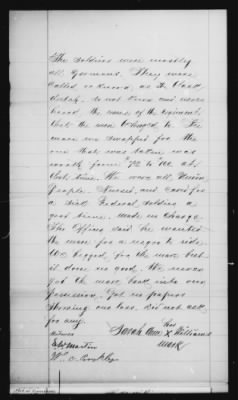 The soldiers were mostly
all Germans. They were
called or known as the
to not know and never
heard the name of the regiment
that the men belonged to. The
mare we swapped for the
one that was taken was
worth from to at
that time. We were all Union
people. Nursed and cared for
a sick Federal soldier a
good time. made no charge.
The officer said he wanted
the mare for a negro to ride.
We begged for the mare but
it done no good. We never
got the mare back into our
possession. Got no papers
showing our loss. did not ask
for any.
her
Sarah Ann X Williams
mark
witness
Martin